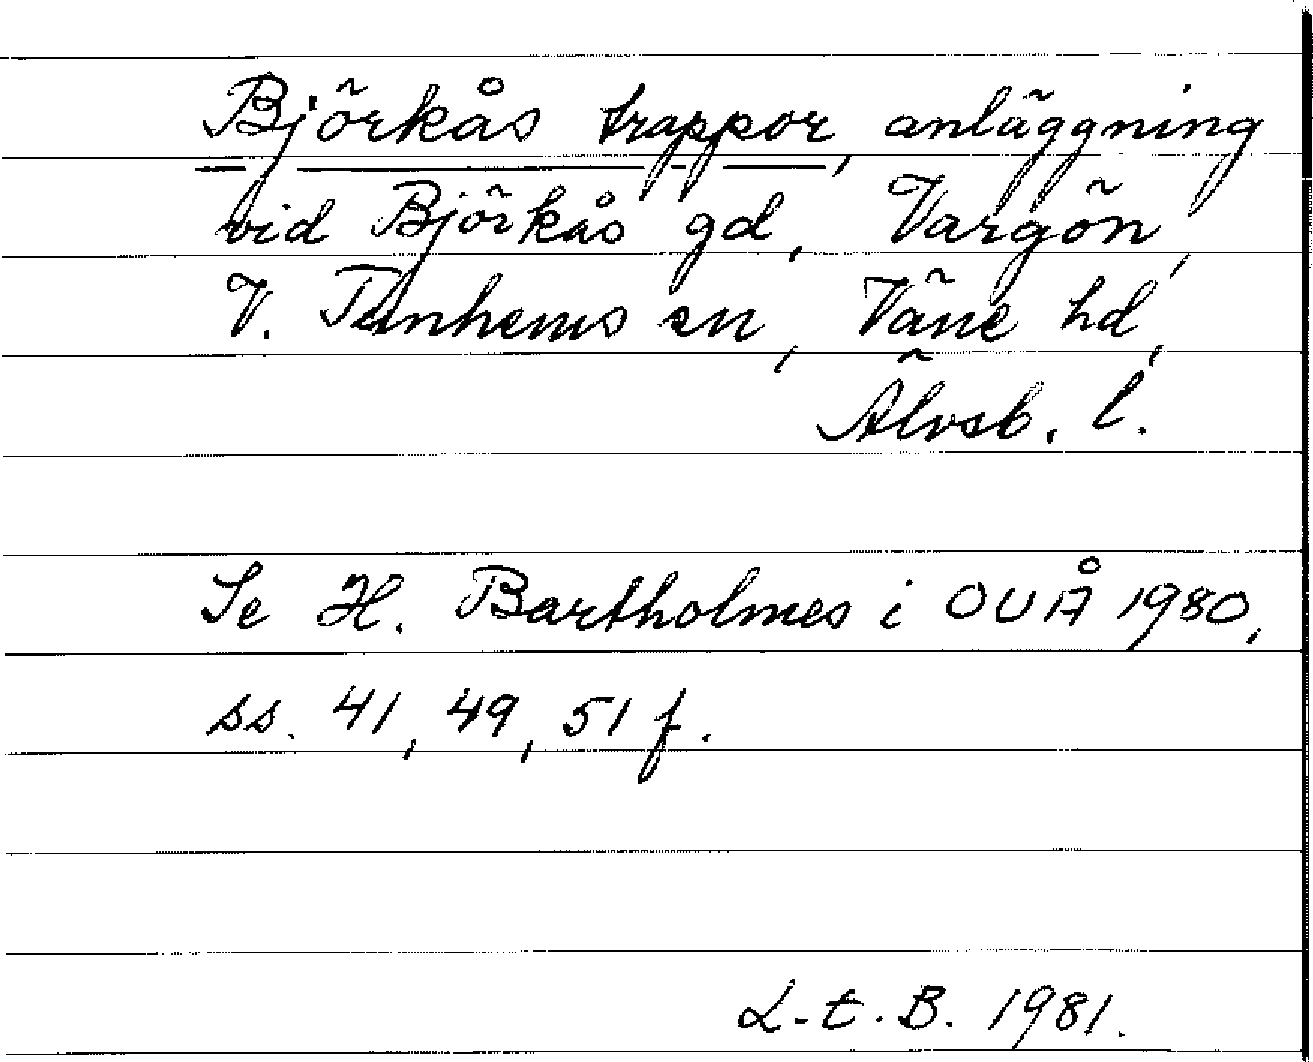 Björkås trappor, anläggning
vid Björkås gd, Vargön,
V. Tunhems sn, Väne hd,
Älvsb. l.
Se H. Bartholmes i OUÅ 1980,
ss. 41, 49, 51 f.
L-t. B. 1981.